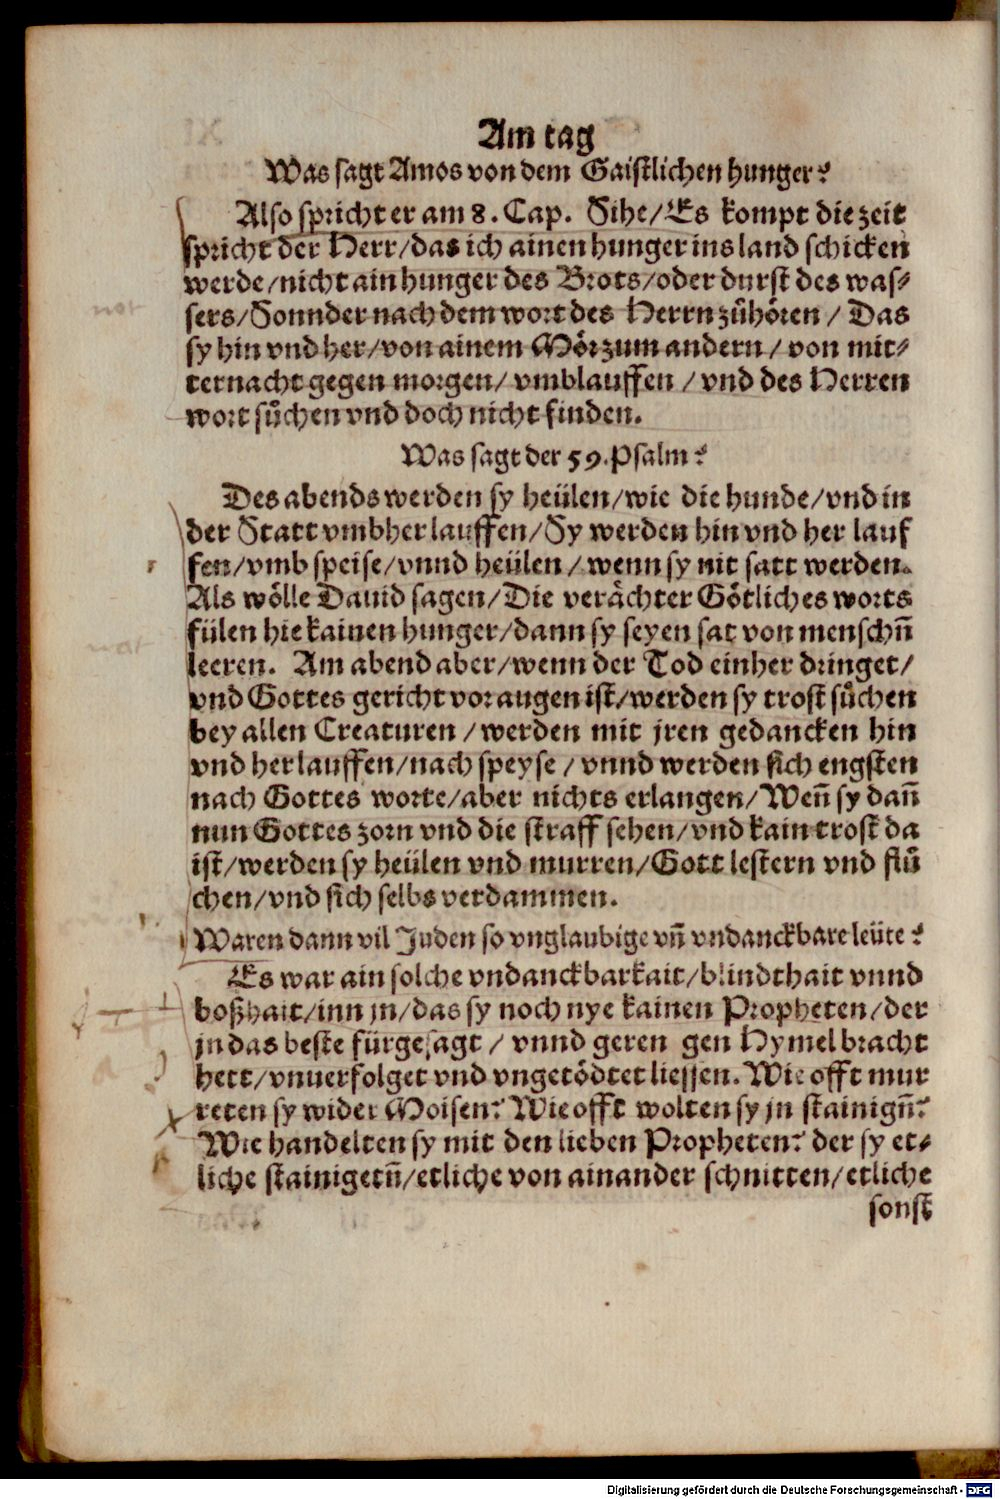 Am tag
Was sagt Amos von dem Gaistlichen hunger?
Also spricht er am 8. Cap. Sihe/Es kompt die zeit
spricht der Herr/das ich ainen hunger ins land schicken
werde/nicht ain hunger des Brots/oder durst des was-
sers/Sonnder nach dem wort des Herrn zůhören/Das
sy hin vnd her/von ainem Mör zum andern/von mit-
ternacht gegen morgen/vmblauffen/vnd des Herren
wort sůchen vnd doch nicht finden.
Was sagt der 59. Psalm?
Des abends werden sy heülen/wie die hunde/vnd in
der Statt vmbher lauffen/Sy werden hin vnd her lauf
fen/vmb speise/vnnd heülen/wenn sy nit satt werden.
Als wölle Dauid sagen/Die verächter Götliches worts
fülen hie kainen hunger/dann sy seyen sat von menschn̄
leeren. Am abend aber/wenn der Tod einher dringet/
vnd Gottes gericht vor augen ist/werden sy trost sůchen
bey allen Creaturen/werden mit jren gedancken hin
vnd her lauffen/nach speyse/vnnd werden sich engsten
nach Gottes worte/aber nichts erlangen/Wen̄ sy dan̄
nun Gottes zorn vnd die straff sehen/vnd kain trost da
ist/werden sy heülen vnd murren/Gott lestern vnd flů
chen/vnd sich selbs verdammen.
Waren dann vil Juden so vnglaubige vn̄ vndanckbare leüte?
Es war ain solche vndanckbarkait/blindthait vnnd
boßhait/inn jn/das sy noch nye kainen Propheten/der
jn das beste fürgesagt/vnnd geren gen Hymel bracht
hett/vnuerfolget vnd vngetödtet liessen. Wie offt mur
reten sy wider Moisen? Wie offt wolten sy jn stainign̄?
Wie handelten sy mit den lieben Propheten? der sy et-
liche stainigetn̄/etliche von ainander schnitten/etliche
sonst
Digitalisierung gefördert durch die Deutsche Forschungsgemeinschaft - DFG